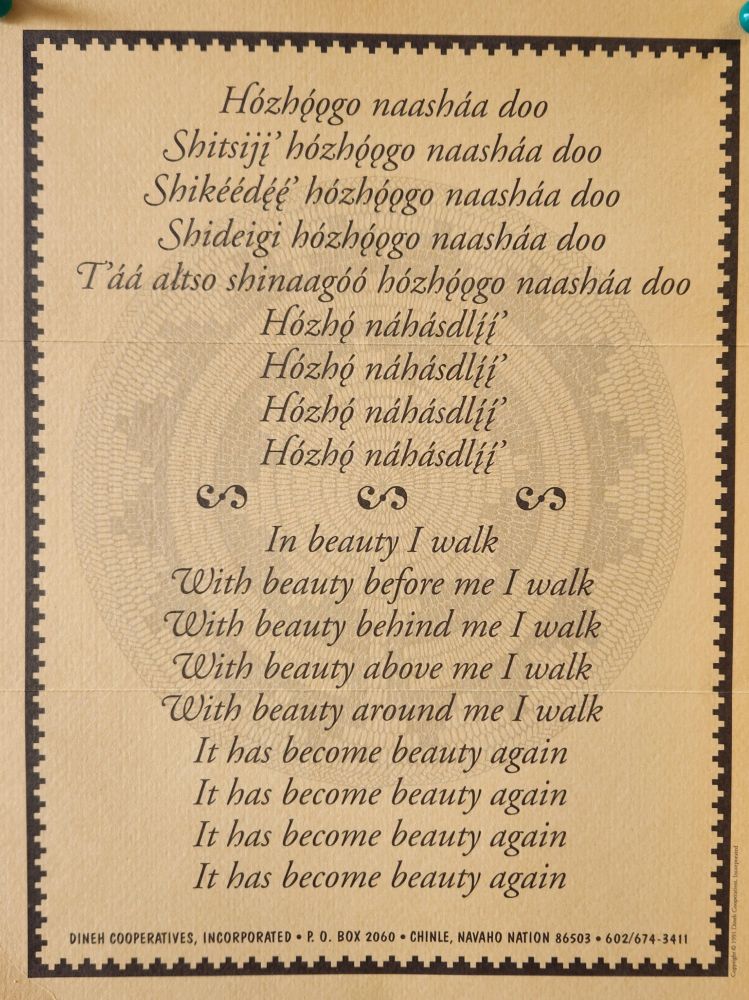 Hózhǫ́ǫgo naasháa doo
Shitsijį’ hózhǫ́ǫgo naasháa doo
Shikéédę́ę́’ hózhǫ́ǫgo naasháa doo
Shideigi hózhǫ́ǫgo naasháa doo
T’áá ałtso shinaagóó hózhǫ́ǫgo naasháa doo
Hózhǫ́ náhásdlį́į́’
Hózhǫ́ náhásdlį́į́’
Hózhǫ́ náhásdlį́į́’
Hózhǫ́ náhásdlį́į́’
In beauty I walk
With beauty before me I walk
With beauty behind me I walk
With beauty above me I walk
With beauty around me I walk
It has become beauty again
It has become beauty again
It has become beauty again
It has become beauty again
DINEH COOPERATIVES, INCORPORATED • P. O. BOX 2060 • CHINLE, NAVAHO NATION 86503 • 602/674-3411
Copyright © 1991 Dineh Cooperatives, Incorporated